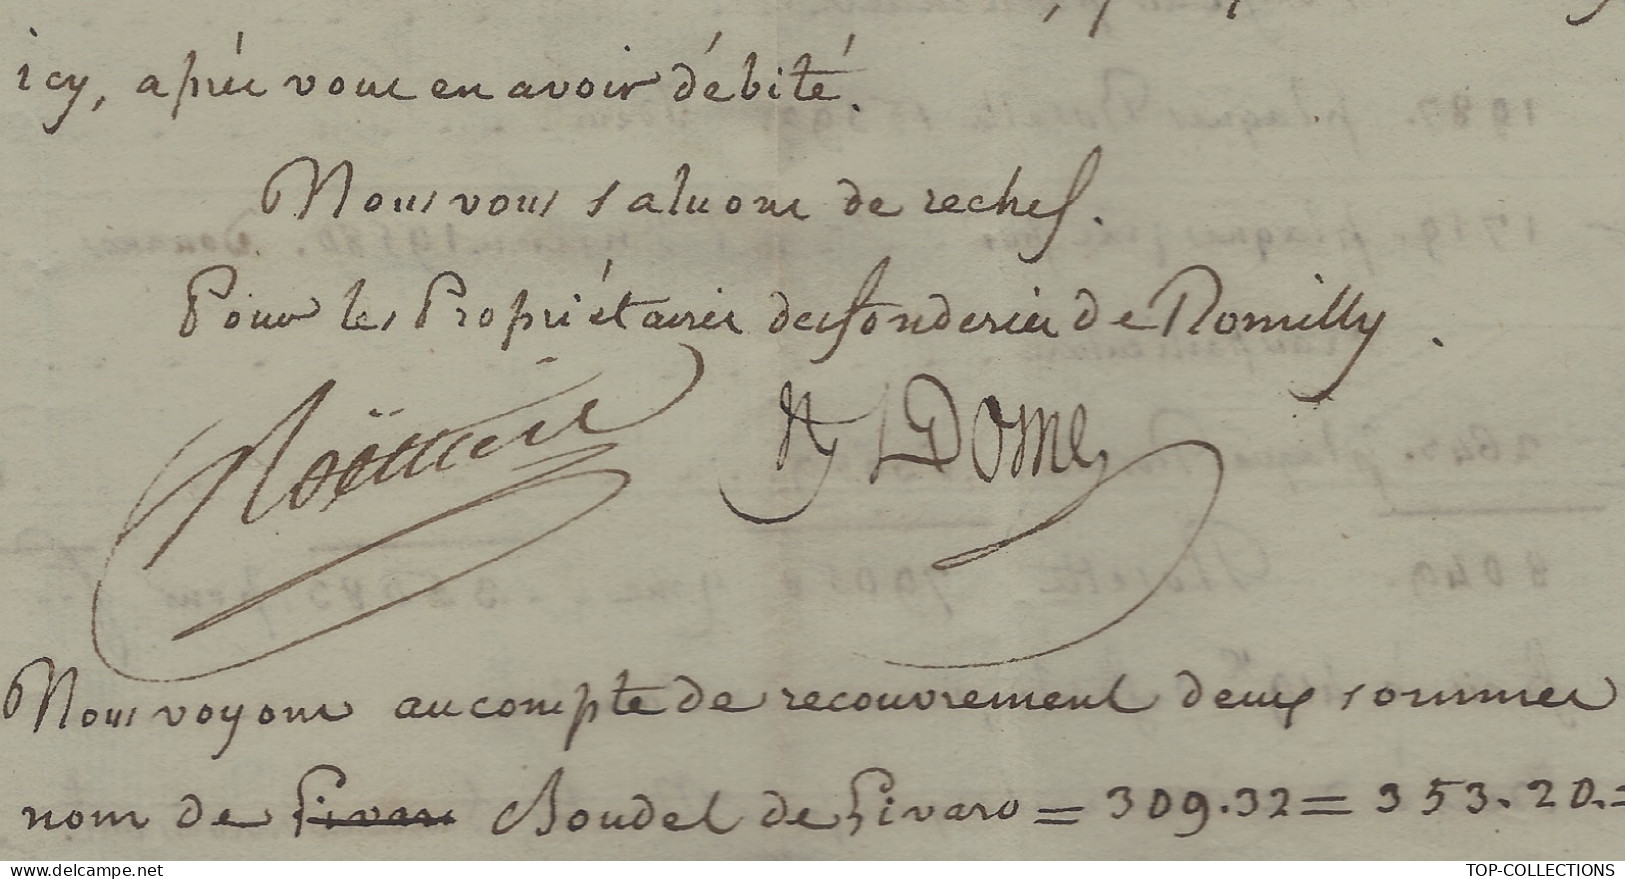 icy, aprés vous en avoir débité.
Nous vous saluons de rechef.
Pour les Propriétaires des fonderies de Romilly.
Nous voyons au compte de recouvrement deux sommes
nom de Boudel de Livaro = 309.32 = 353.20. =
TOP-COLLECTIONS